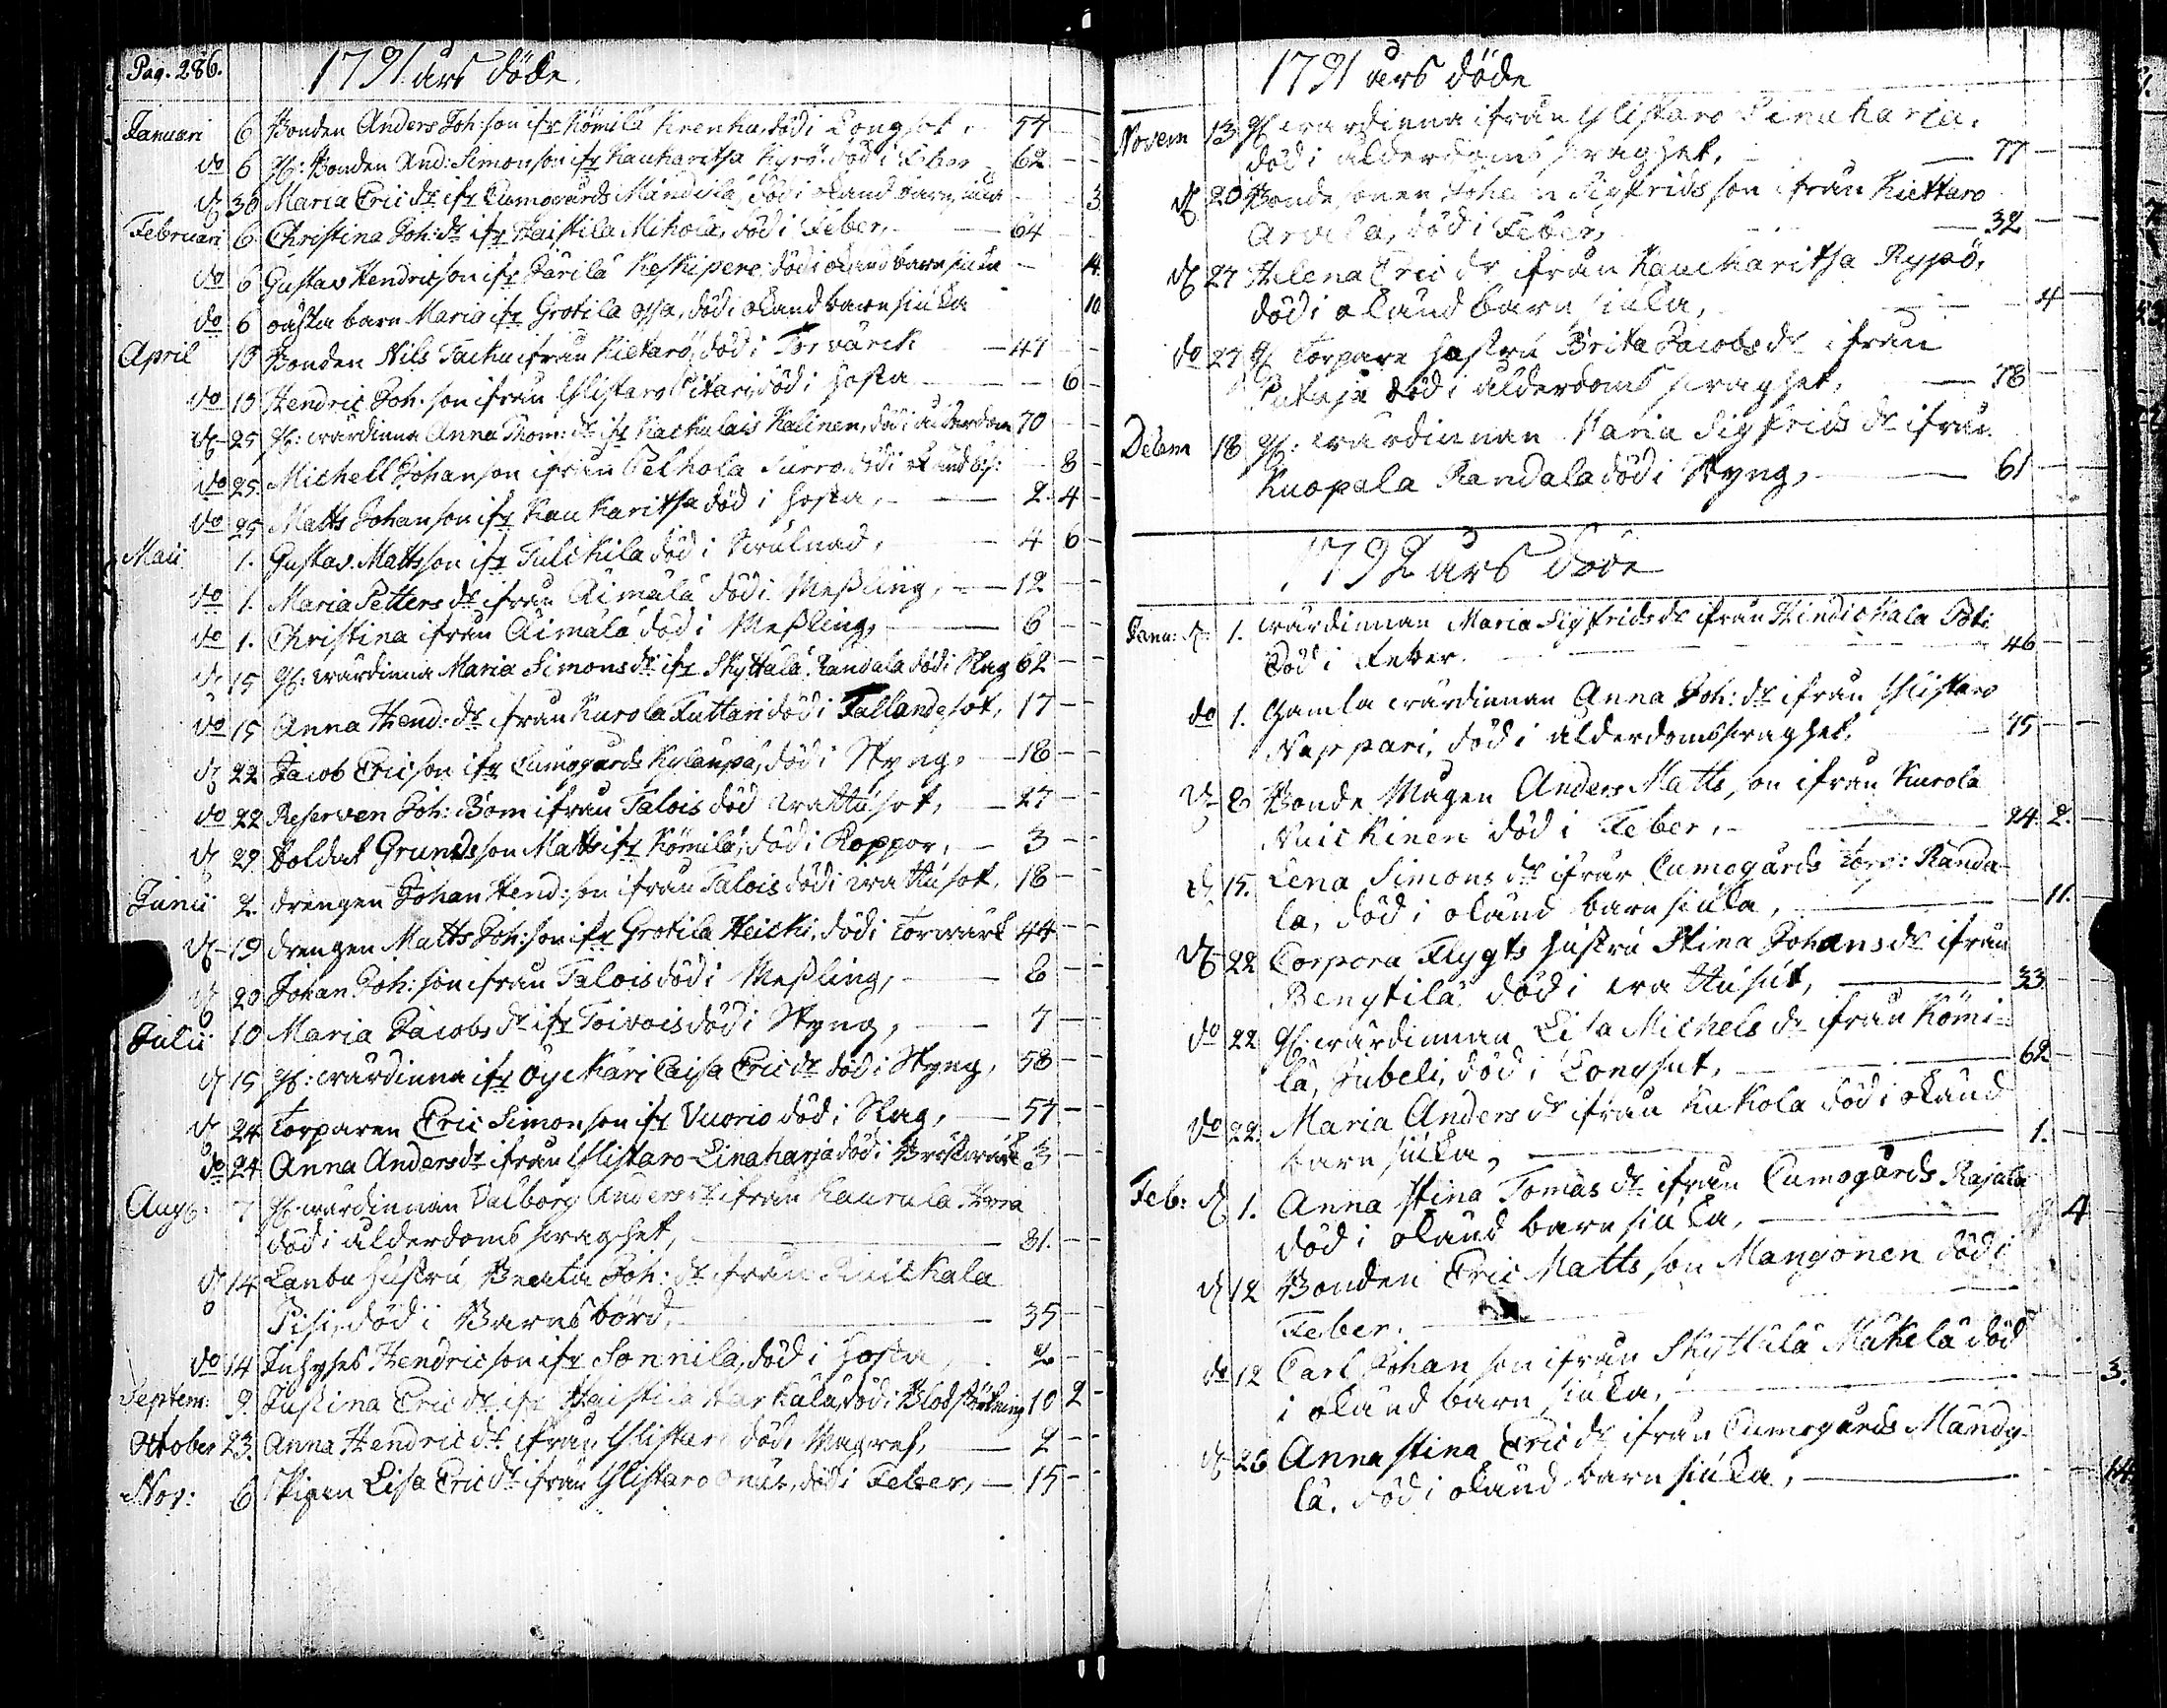 Pag. 286. 1791 års döde
Januari 6 Bonden Anders Joh:son ifr Kömilä Krenku, död i Longsot 57
do 6 Gl: Bonden And: Simonson ifr Kaukaritsa Kyrö död i Feber 62
do 30 Maria Ericdr ifr Cumogårds Mändilä död i okänd barnsiuka 3
Februari 6 Christina Joh:dr ifr Haistila Mikola, död i Feber, 64
do 6 Gustav Hendricson ifr Pärilä Keskipere död i okänd barnsiuka 14
do 6 oästa barn Maria ifr Grotila ossa, död i okänd barnsiuka 10
April 10 Bonden Nils Tacku ifrån Kiettarö, död i Torvärck 47
do 10 Hendric Joh:son ifrån Ylistaro Pitari, död i hosta 6
do 25 Gl: wärdinna Anna Thom:dr ifr Kackulais Kalinen, död i ålderdom 70
do 25 Michell Johanson ifrån Pelhola Surro död i okänd bs: 8
do 25 Matts Johanson ifr Kaukaritsa död i hosta, 2 4
Maii 1. Gustav Mattsson ifr Tulckila död i Swulnad, 4 6
do 1. Maria Pettersdr ifrån Äimälä död i Meßling, 12
do 1. Christina ifrån Äimälä död i Meßling, 6
do 15 Gl: wärdinna Maria Simonsdr ifr Skyttälä Randala död i Slag 62
do 15 Anna Hend:dr ifrån Kurola Tuttari död i Fallandesot, 17
do 22 Jacob Ericson ifr Cumogårds Kylänpä, död i Styng, 18
do 22 Reserven Joh: Bom ifrån Talois död wattusot, 27
do 29 Soldat Grunds son Matts ifr Kömilä, död i Koppor, 3
Junii 2. drengen Johan Hend:son ifrån Talois död i wattusot, 18
do 19 drengen Matts Joh:son ifr Grotila Heicki, död i Torwärk 44
do 20 Johan Joh:son ifrån Talois död i Meßling, 2
Julii 10 Maria Jacobsdr ifr Toivois död i Styng, 7
do 15 Gl: wärdinna ifr Öyckäri Caisa Ericdr död i Styng, 58
do 24 Torparen Eric Simonson ifr Vuorio död i Slag, 57
do 24 Anna Andersdr ifrån Ylistaro Linaharja död i Bröstwärk 3
Aug: 7 Gl: wärdinnan Valborg Andersdr ifrån Kaurula
död i ålderdoms swaghet, 81.
do 14 Lanbo hustru Beata Joh:dr ifrån Ruickala
Pisi, död i Barnsbörd, 35
do 14 Hendricson ifr Sonnila, död i hosta, 2
Septem: 9. Justina Ericdr ifr Haistila Harkälä, död i Blodstörtning 10 2
October 23. Anna Hendricdr ifrån Ylistaro död i Magref, 2
Nov: 6 Pigan Lisa Ericdr ifrån Ylistaro Onus, död i Feber, 15
1791 års döde
Novem 13 Gl wärdinna ifrån Ylistaro Linaharia,
död i ålderdoms swaghet, 77
do 20 Bondesonen Johan Sigfridsson ifrån Kiettaro
Arvela, död i Feber, 32
do 27 Helena Ericdr ifrån Kauckaritsa Rypö,
död i okänd barnsiuka, 4
do 27 Gl Torpare hustru Brita Jacobsdr ifrån
död i ålderdoms swaghet, 78
Decem 18 Gl: wärdinnan Maria Sigfridsdr ifrån
Kuopala Randala död i Styng, 61
1792 års döde
Janu: d. 1. wärdinnan Maria Sigfridsdr ifrån Hindickala
död i Feber. 46
do 1. Gamla wärdinnan Anna Joh:dr ifrån Ylistaro
Nappari, död i ålderdomsswaghet, 75
do 8 Bonde Mågen Anders Mattsson ifrån Kurola
Nuickinen död i Feber, 24. 2.
do 15. Lena Simonsdr ifrån Cumogårds Torp: Randa-
la, död i okänd barnsiuka, 11.
do 22 Corpora Flygts hustru Stina Johansdr ifrån
Bengtilä död i wattusut, 33
do 22 Gl: wärdinnan Lisa Michelsdr ifrån Kömi-
lä, Jubeli, död i Longsut, 62
do 22. Maria Andersdr ifrån Kukola död i okänd
barnsiuka, 1.
Feb: d 1. Anna Stina Tomasdr ifrån Cumogårds Rajala
död i okänd barnsiuka, 4
do 12 Bonden Eric Mattsson Mangonen död i
Feber.
do 12 Carl Johanson ifrån Skyttälä Mäkelä död
i okänd barnsiuka, 3.
do 26 Anna Stina Ericdr ifrån Cumogårds Mändy-
lä, död i okänd barnsiuka, 14